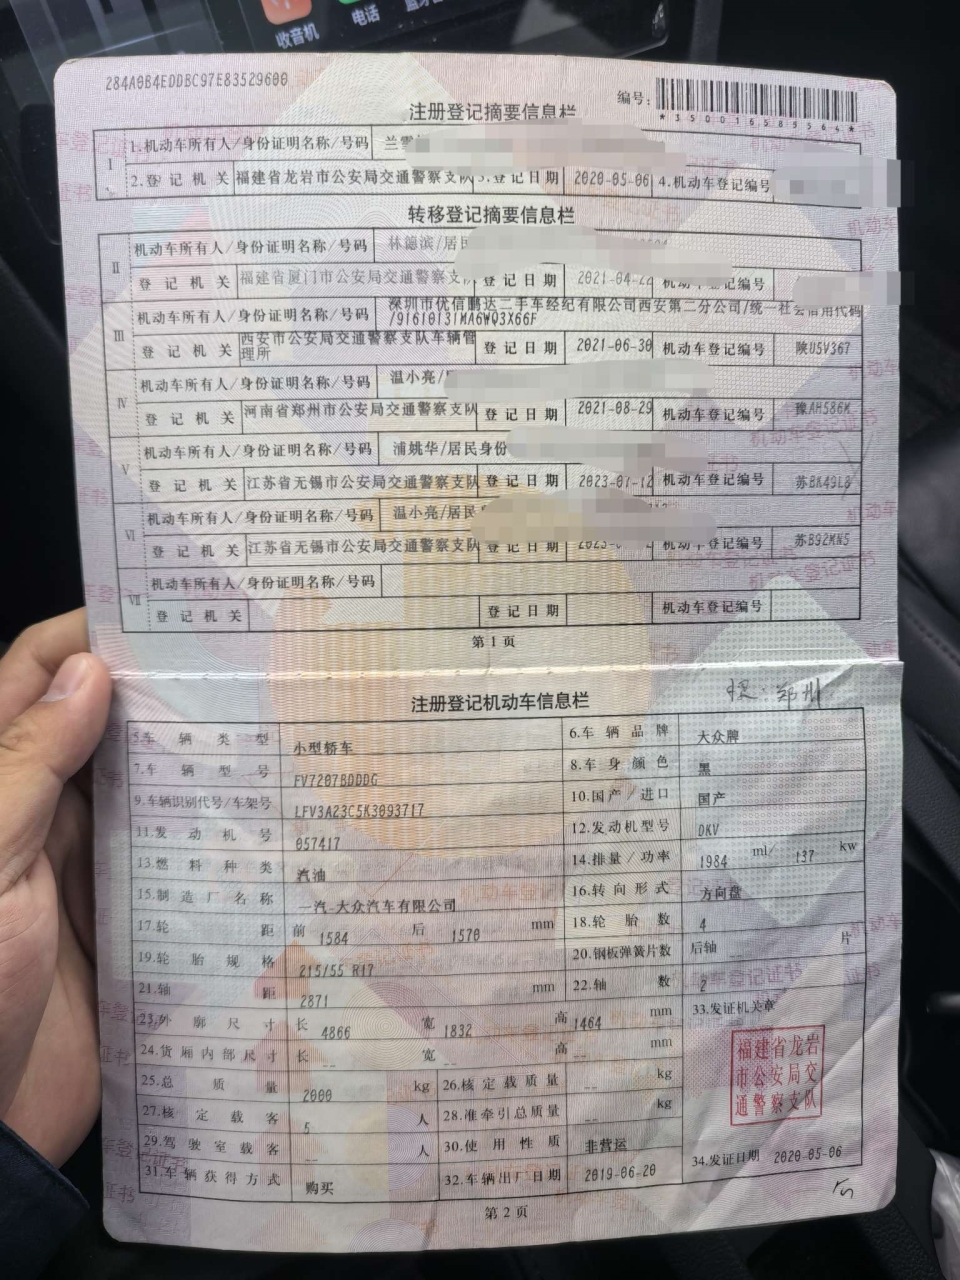 收音机
电话
284A0B4EDDBC97E83529600
注册登记摘要信息栏
编号:
*350016585564*
1
1.机动车所有人/身份证明名称/号码
2.登记机关 福建省龙岩市公安局交通警察支队 3.登记日期 2020-05-06 4.机动车登记编号
转移登记摘要信息栏
II 机动车所有人/身份证明名称/号码 林德滨/居民
登记机关 福建省厦门市公安局交通警察支 登记日期 2021-04-22 机动车登记编号
III 机动车所有人/身份证明名称/号码 深圳市优信鹏达二手车经纪有限公司西安第二分公司/统一社会信用代码
/91610131MA6WQ3X66F
登记机关 西安市公安局交通警察支队车辆管理所 登记日期 2021-06-30 机动车登记编号 陕U5V367
IV 机动车所有人/身份证明名称/号码 温小亮/
登记机关 河南省郑州市公安局交通警察支队 登记日期 2021-08-29 机动车登记编号 豫AH586K
V 机动车所有人/身份证明名称/号码 浦姚华/居民身份
登记机关 江苏省无锡市公安局交通警察支队 登记日期 2023-01-12 机动车登记编号 苏BK49L8
VI 机动车所有人/身份证明名称/号码 温小亮/居民
登记机关 江苏省无锡市公安局交通警察支队 登记日期 2023- 机动车登记编号 苏B92MN5
VII 机动车所有人/身份证明名称/号码
登记机关 登记日期 机动车登记编号
第1页
注册登记机动车信息栏
郑州
5.车辆类型 小型轿车 6.车辆品牌 大众牌
7.车辆型号 FV7207BDDDG 8.车身颜色 黑
9.车辆识别代号/车架号 LFV3A23C5K3093717 10.国产/进口 国产
11.发动机号 057417 12.发动机型号 DKV
13.燃料种类 汽油 14.排量/功率 1984 ml/ 137 kw
15.制造厂名称 一汽-大众汽车有限公司 16.转向形式 方向盘
17.轮距 前 1584 后 1570 mm 18.轮胎数 4
19.轮胎规格 215/55 R17 20.钢板弹簧片数 后轴 -- 片
21.轴距 2871 mm 22.轴数 2
23.外廓尺寸 长 4866 宽 1832 高 1464 mm 33.发证机关章
24.货厢内部尺寸 长 -- 宽 -- 高 -- mm
福建省龙岩
市公安局交
通警察支队
25.总质量 2000 kg 26.核定载质量 -- kg
27.核定载客 5 人 28.准牵引总质量 -- kg
29.驾驶室载客 -- 人 30.使用性质 非营运
31.车辆获得方式 购买 32.车辆出厂日期 2019-06-20 34.发证日期 2020-05-06
第2页